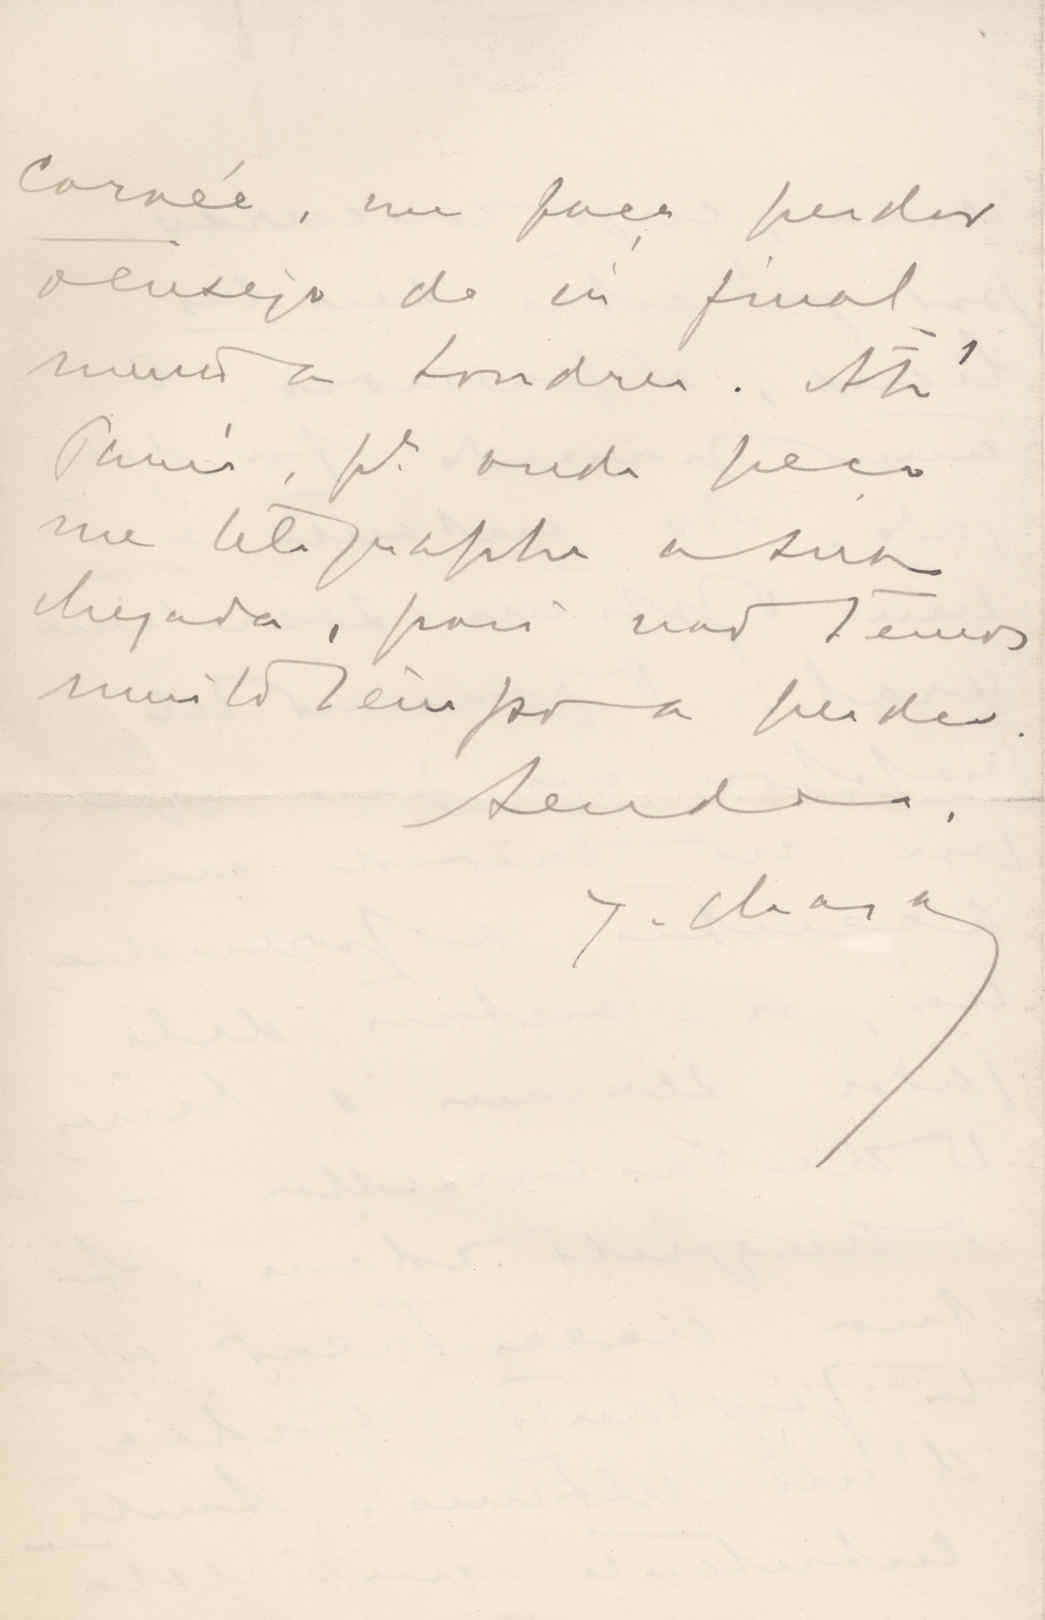 corvée, me faça perder
o ensejo de ir final
mente a Londres. Até
Paris, pª onde peço
me telegraphe a sua
chegada, pois naõ temos
muito tempo a perder.